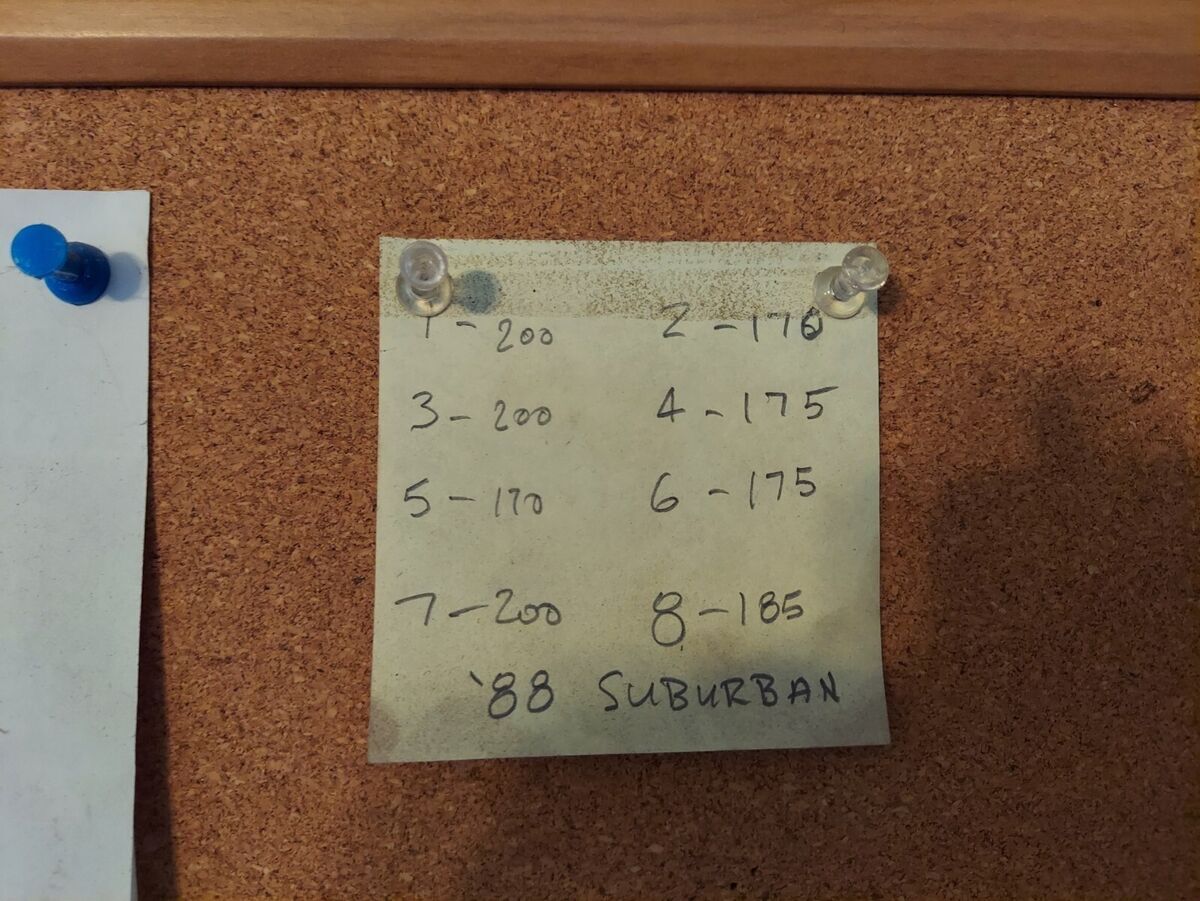 1 - 200 2 - 176
3 - 200 4 - 175
5 - 170 6 - 175
7 - 200 8 - 185
'88 SUBURBAN